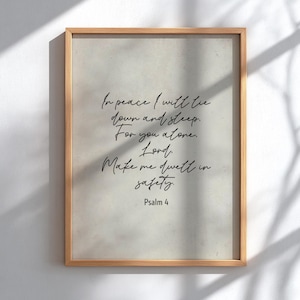 In peace I will lie
down and sleep,
For you alone,
Lord,
Make me dwell in
safety.
Psalm 4